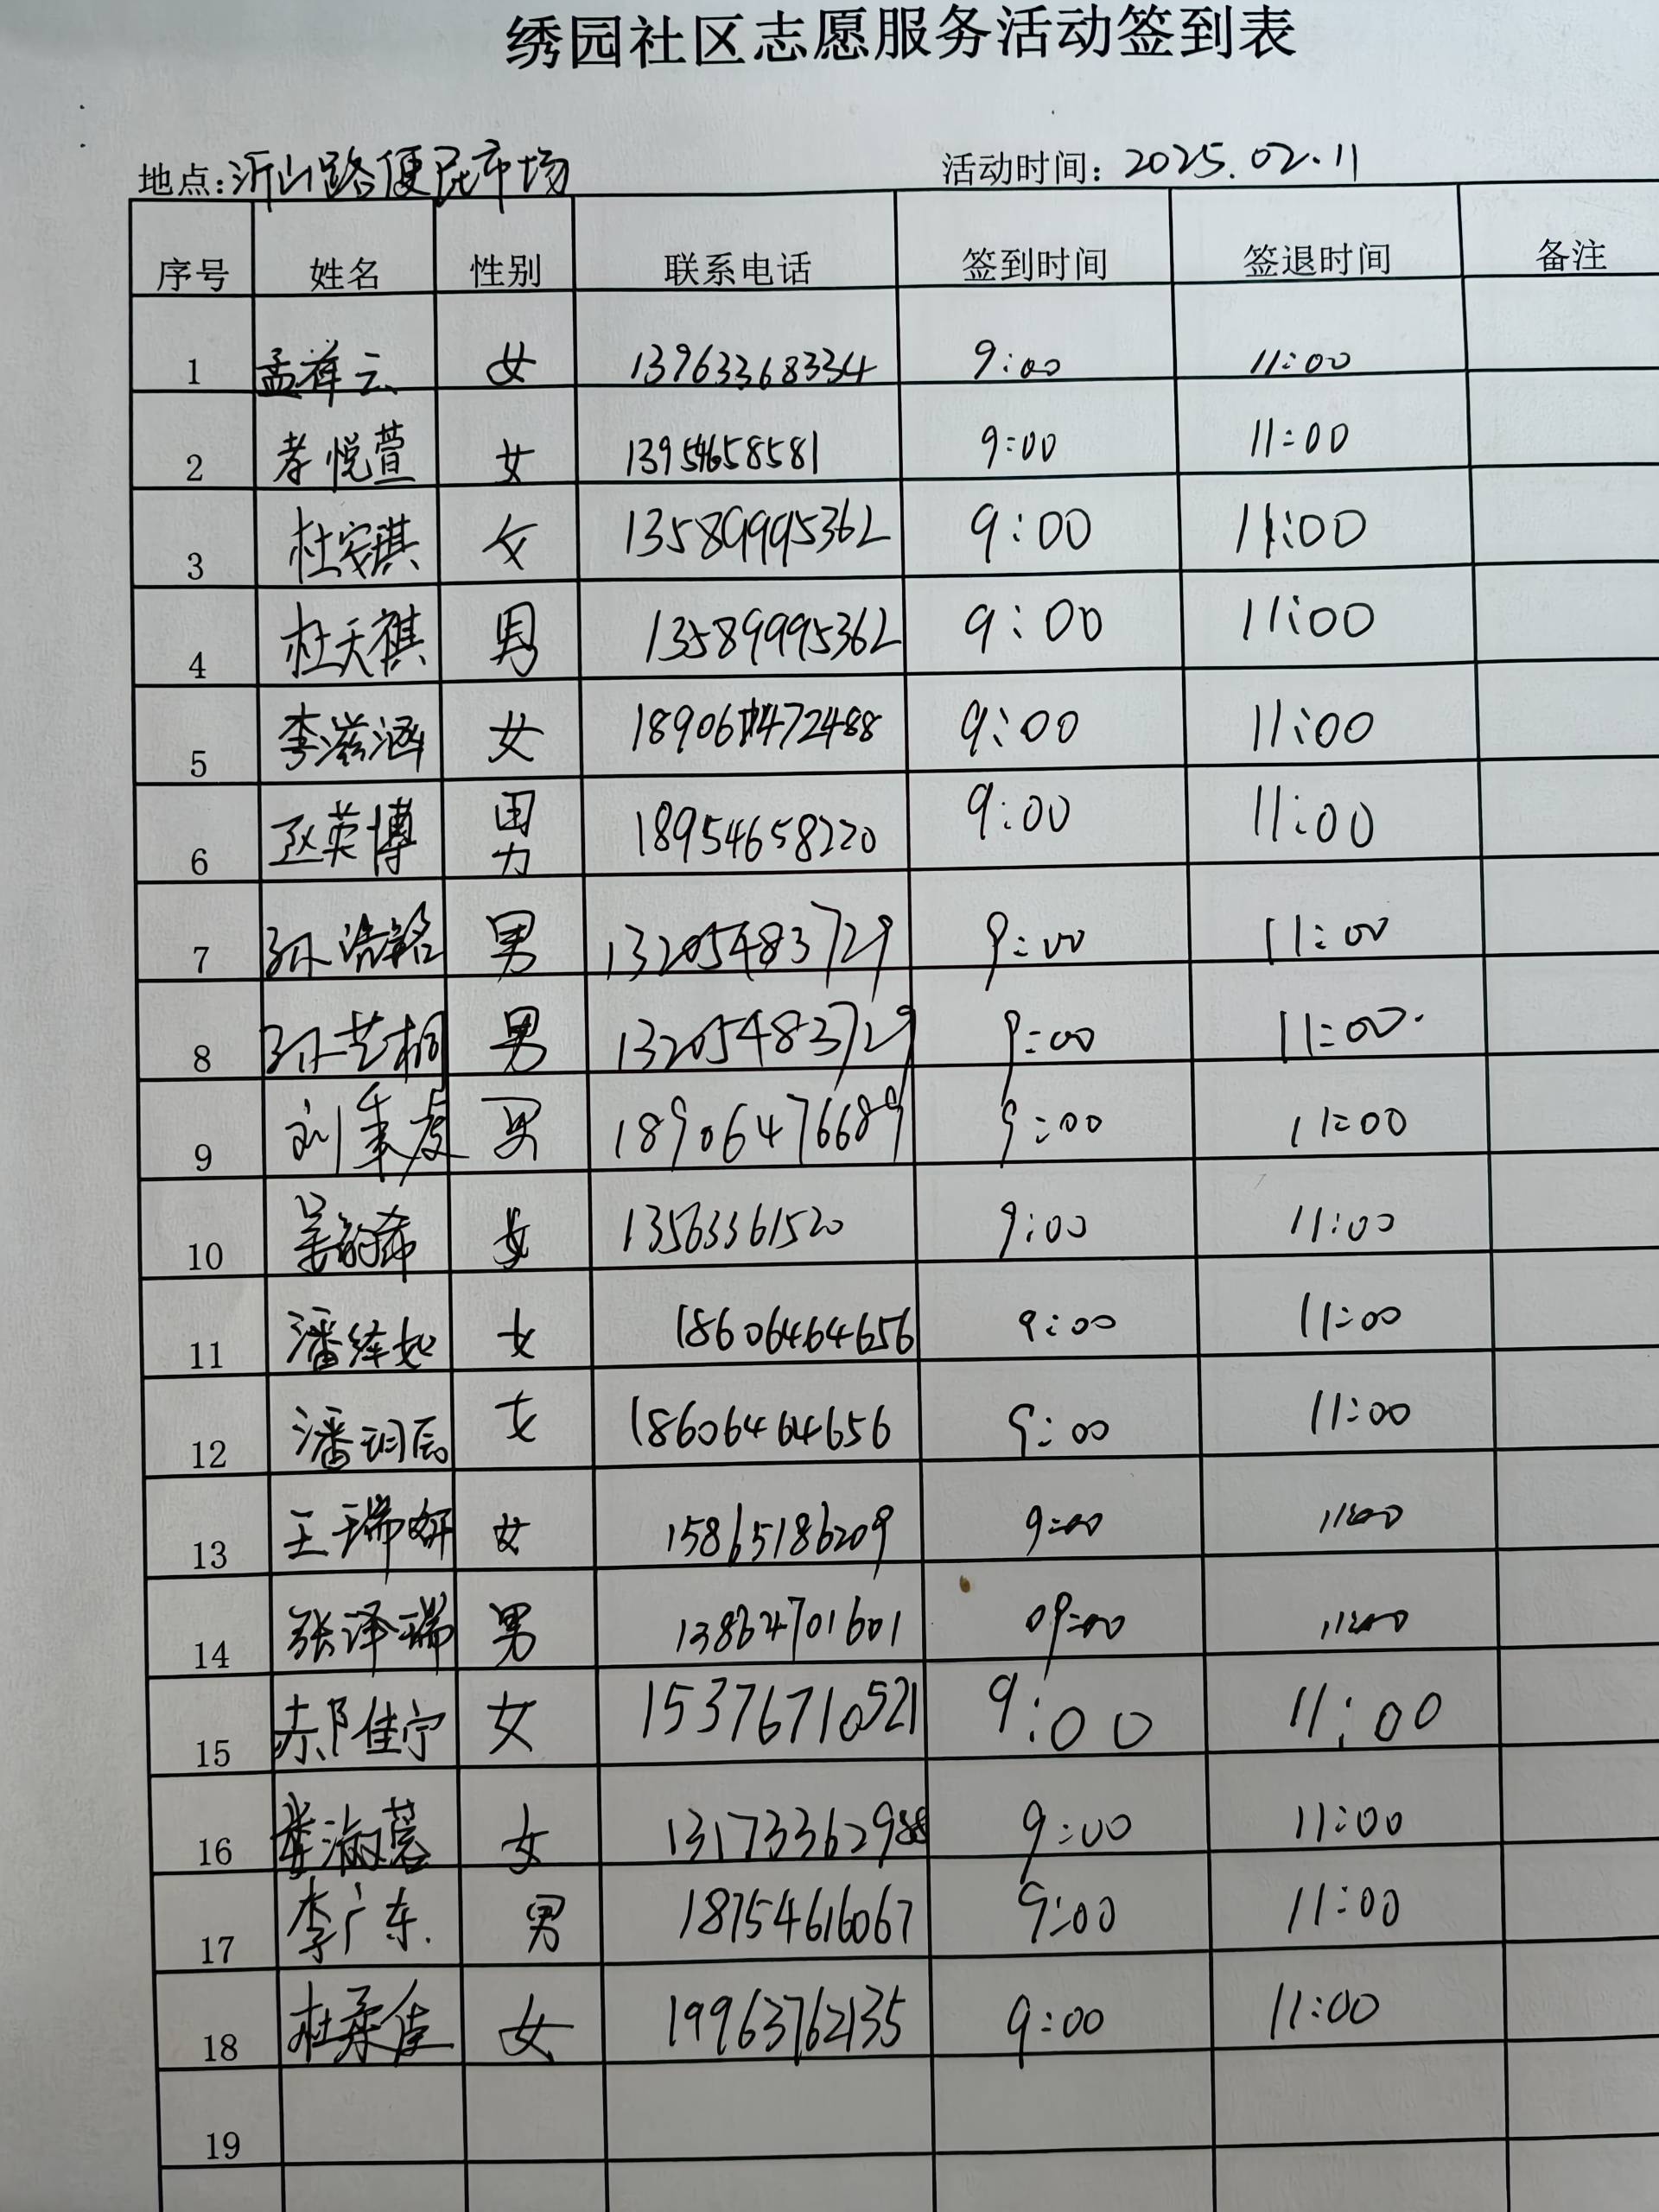 绣园社区志愿服务活动签到表
地点:沂山路便民市场 活动时间: 2025.02.11
序号 姓名 性别 联系电话 签到时间 签退时间 备注
1 孟祥云 女 13963368334 9:00 11:00
2 孝悦萱 女 13954658581 9:00 11:00
3 杜安琪 女 13589995362 9:00 11:00
4 杜天祺 男 13589995362 9:00 11:00
5 李滋涵 女 9:00 11:00
6 赵英博 男 18954658220 9:00 11:00
7 孙浩铭 男 13205483729 9:00 11:00
8 孙艺桐 男 13205483729 9:00 11:00.
9 男 18906476689 9:00 11:00
10 女 13563361520 9:00 11:00
11 女 18606464656 9:00 11:00
12 女 18606464656 9:00 11:00
13 王瑞妍 女 15865186209 9:00 11:00
14 张泽瑞 男 13864701601 09:00 11:00
15 郝佳宁 女 15376710521 9:00 11:00
16 女 13173362988 9:00 11:00
17 李广东. 男 18754616067 9:00 11:00
18 杜柔佳 女 19963762135 9:00 11:00
19